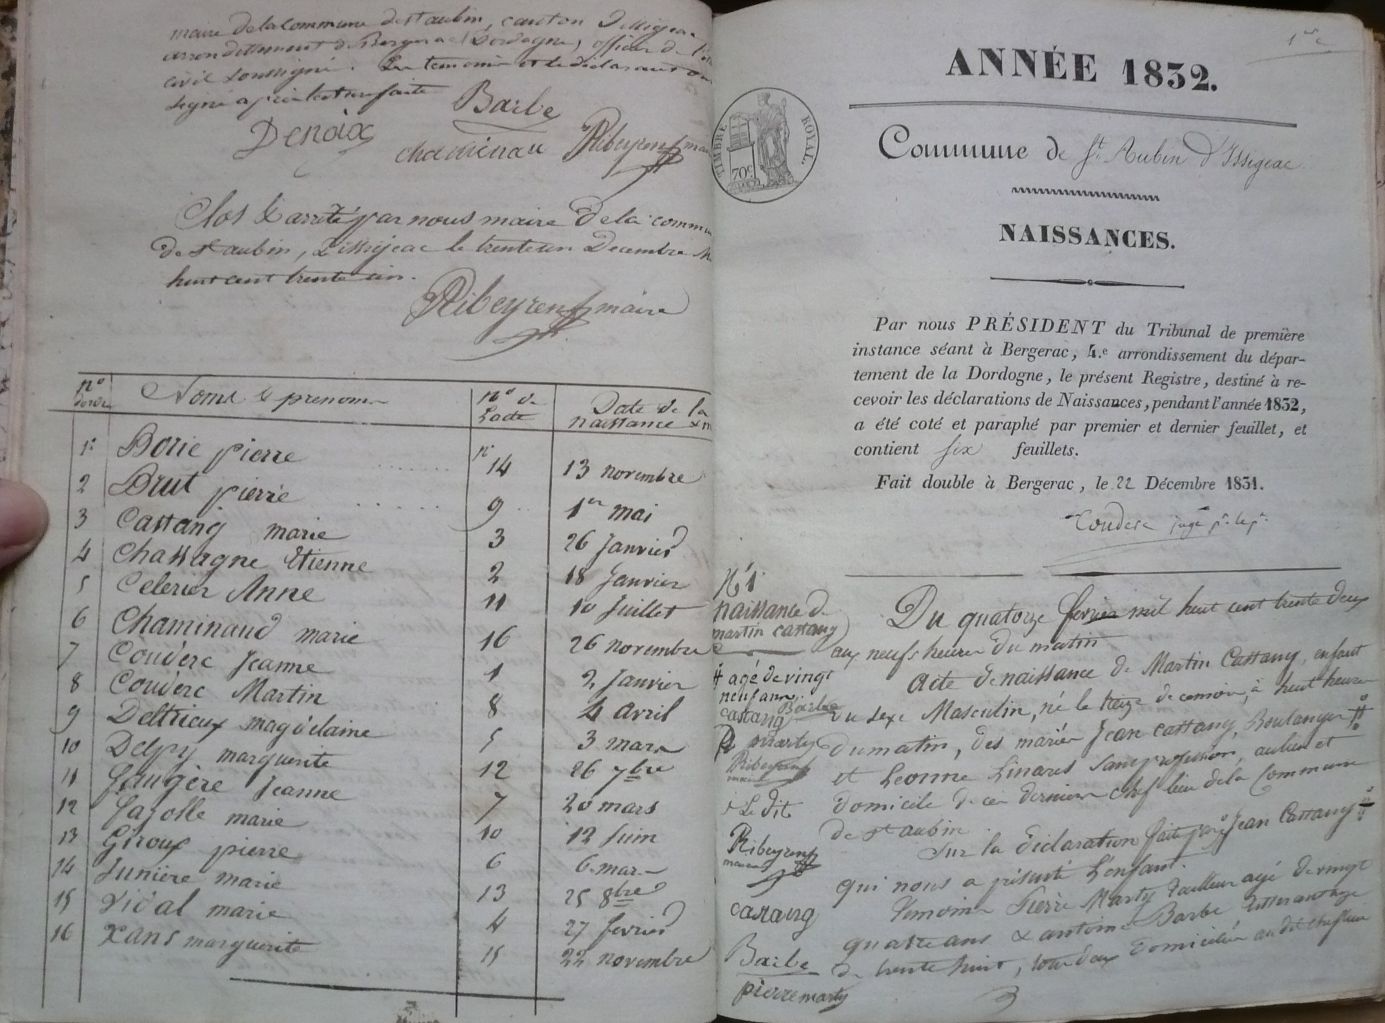 maire de la commune de st aubin, canton Dissigeac
arrondissement de Bergerac (Dordogne) officier de
civil soussigné. Les temoins et le declarant on
signé apres lecture faite
Barbe
Denoix
chaminau
Ribeyren maire
Clos & arrêté par nous maire de la commu
de st aubin, Dissigeac le trente un Decembre M
huit cent trente un.
Ribeyren maire
no dordre
Noms & prenoms
no de Lacte
Date de la naissance
1r Borie pierre no 14 13 novembre
2 Brut pierre 9 1er mai
3 Castang marie 3 26 Janvier
4 Chassagne Etienne 2 18 Janvier
5 Celerier Anne 11 10 Juillet
6 Chaminaud marie 16 26 novembre
7 Couderc Jeanne 1 2 Janvier
8 Couderc Martin 8 4 avril
9 Deltrieux magdelaine 5 3 mars
10 Delpy marguerite 12 26 7bre
11 Jaugère Jeanne 7 20 mars
12 Jajolle marie 10 12 Juin
13 Giroux pierre 6 6 mars
14 Juniere marie 13 25 8bre
15 Vidal marie 4 27 fevrier
16 Xans marguerite 15 22 novembre
1er
ANNÉE 1832.
TIMBRE ROYAL.
70c
Commune de St Aubin d'Issigeac
NAISSANCES.
Par nous PRÉSIDENT du Tribunal de première
instance séant à Bergerac, 4.e arrondissement du dépar-
tement de la Dordogne, le présent Registre, destiné à re-
cevoir les déclarations de Naissances, pendant l'année 1832,
a été coté et paraphé par premier et dernier feuillet, et
contient six feuillets.
Fait double à Bergerac, le 22 Décembre 1831.
Couderc juge pr le pt
No 1
naissance de
martin castang
# agé de vingt
neuf ans
castang Barbe
P marty
Ribeyren
maire
Le dit
Ribeyren
maire
castang
Barbe
pierre marty
Du quatorze fevrier mil huit cent trente deux
aux neufs heures du matin
Acte de naissance de Martin Castang, enfant
du sexe Masculin, né le treize de ce mois, à huit heures
du matin, des mariés Jean Castang, Boulanger #
et Leonne Linares sans profession, au lieu et
domicile de ce dernier chef lieu de la Commune
de st aubin
Sur la déclaration faite par Jean Castang
qui nous a présenté L'enfant
Temoins Pierre Marty tailleur agé de vingt
quatre ans & antoine Barbe, tisserand age
de trente huit, tous deux domiciliés au dit chef lieu